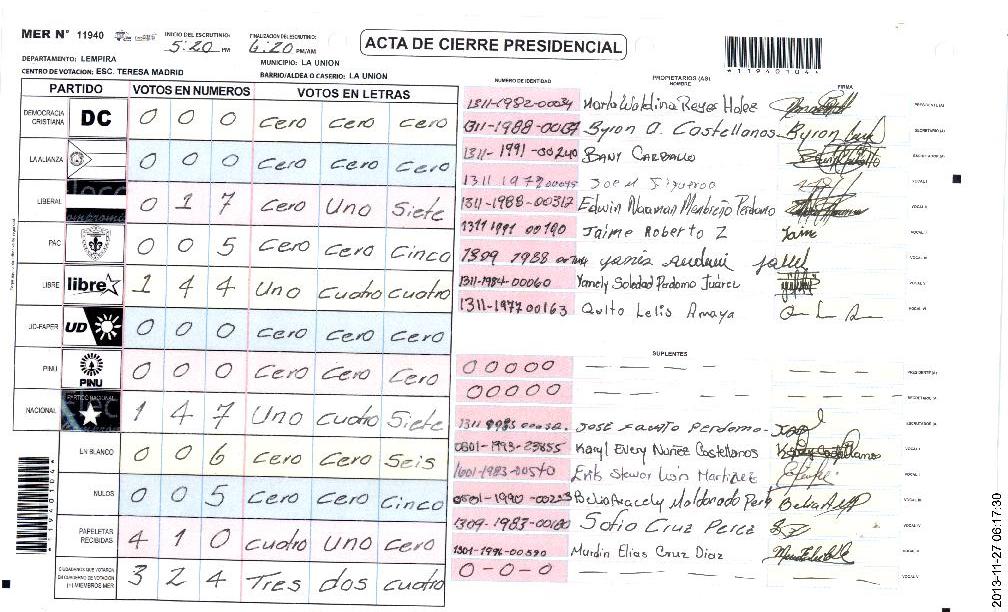 MER N° 11940
INICIO DEL ESCRUTINIO:
5:20 PM
FINALIZACION DEL ESCRUTINIO:
6:20 PM/AM
ACTA DE CIERRE PRESIDENCIAL
DEPARTAMENTO: LEMPIRA
MUNICIPIO: LA UNION
CENTRO DE VOTACION: ESC. TERESA MADRID
BARRIO/ALDEA O CASERIO: LA UNION
*119401044*
PARTIDO VOTOS EN NUMEROS VOTOS EN LETRAS
DEMOCRACIA CRISTIANA DC 0 0 0 Cero Cero Cero
LA ALIANZA 0 0 0 Cero Cero Cero
LIBERAL 0 1 7 Cero Uno Siete
PAC 0 0 5 Cero Cero Cinco
LIBRE libre 1 4 4 Uno Cuatro Cuatro
UD-FAPER UD 0 0 0 Cero Cero Cero
PINU PINU 0 0 0 Cero Cero Cero
NACIONAL PARTIDO NACIONAL 1 4 7 Uno cuatro Siete
EN BLANCO 0 0 6 Cero Cero Seis
NULOS 0 0 5 Cero Cero Cinco
PAPELETAS RECIBIDAS 4 1 0 Cuatro Uno Cero
CIUDADANOS QUE VOTARON EN CUADERNO DE VOTACION (+) MIEMBROS MER 3 2 4 Tres dos cuatro
NUMERO DE IDENTIDAD PROPIETARIOS (AS) NOMBRE FIRMA
1311-1982-00034 Reyes PRESIDENTE(A)
1311-1988- Byron A. Castellanos Byron SECRETARIO(A)
1311-1991-00240 Bany Carballo
1311 1977 Figueroa VOCAL I
1311-1988-00312 Edwin Perdomo VOCAL II
1311 1991 00190 Jaime Roberto Z Jaime
1309 1988
1311-1984-00060 Yamely Soledad Perdomo Juárez
1311-1977 00163 Quito Lelis Amaya
SUPLENTES
0 0 0 0 0 PRESIDENTE(A)
0 0 0 0 0 SECRETARIO(A)
1311 José Fausto Perdomo
0801-1993-23855 Karyl Every Nuñez Castellanos
1601-1983-00540 Erik Martinez
0801-1990- Maldonado
1309-1983-00180 Sofia Cruz Perez
1301-1996-00590 Elias Cruz Diaz
0-0-0
2013-11-27 06:17:30